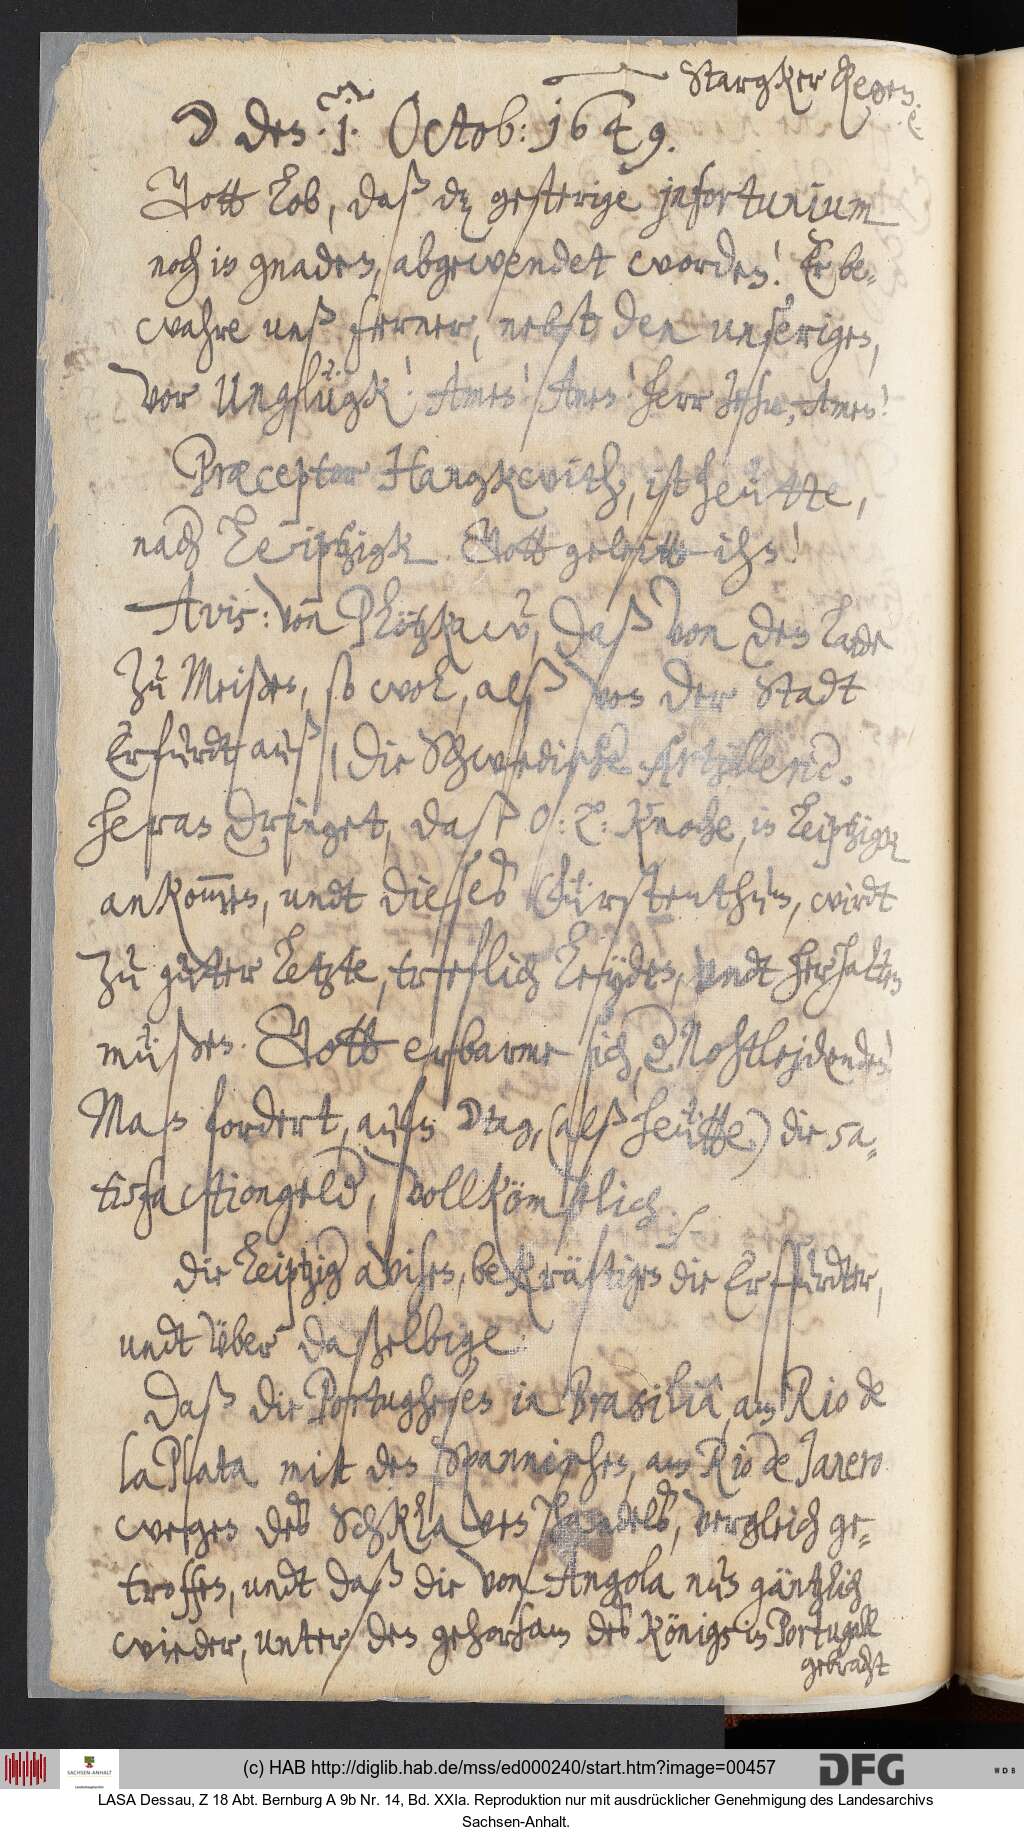 Stargker Regen.
☽ den 1. Octob: 1649.
Gott lob, daß dz gesterige infortunium
noch in gnaden, abgewendet worden! Er be-
wahre unß ferner, nebst den unserigen,
vor Unglügk! Amen! Amen! herr Jesu, Amen!
Præceptor Hangkwith, ist heütte,
nach Leiptzigk. Gott geleitte ihn!
Avis: von Plötzkaw, daß von den Lande
zu Meißen, so wol, alß von der Stadt
Erfurdt auß, die Schwedische Artillerie.
heran dringet, daß O: L: Knoche, in Leiptzigk
ankommen, undt dieses Fürstenthumb, wirdt
zu gutter letzte, treflich leyden, undt herhalten
müßen. Gott erbarme sich, der Nohtleydenden!
Man fordert, aufn ☽tag, (alß heütte) die sa-
tisfactiongeld, vollkömblich.
Die Leiptzig avisen, bekräftigen die Erffurdter,
undt über daßelbige
Daß die Portughesen in Brasilia, am Rio de
la Plata mitt den Spannischen, am Rio de Janero
wegen des Schklaven handels, vergleich ge-
troffen, undt daß die von Angola nun gäntzlich
wieder, unter den gehorsam des Königs in Portugall
gebracht
(c) HAB http://diglib.hab.de/mss/ed000240/start.htm?image=00457
SACHSEN-ANHALT
DFG
WDB
LASA Dessau, Z 18 Abt. Bernburg A 9b Nr. 14, Bd. XXIa. Reproduktion nur mit ausdrücklicher Genehmigung des Landesarchivs
Sachsen-Anhalt.